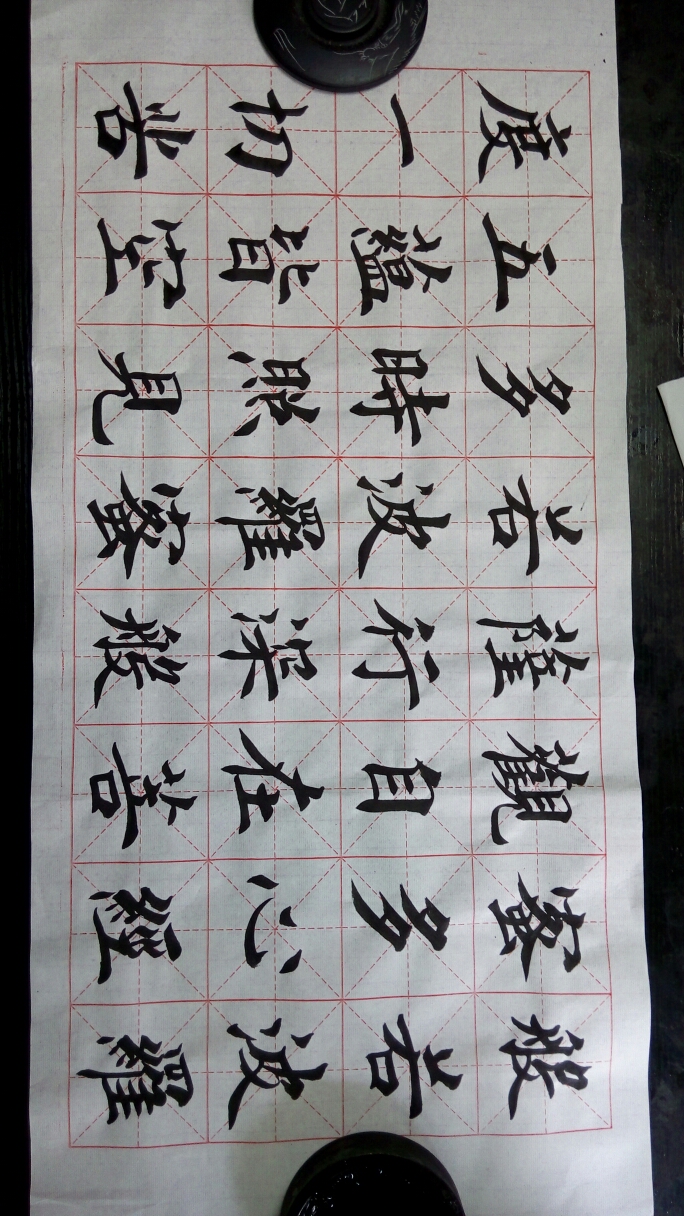 般若波羅
蜜多心經
觀自在菩
薩行深般
若波羅蜜
多時照見
五蘊皆空
度一切苦